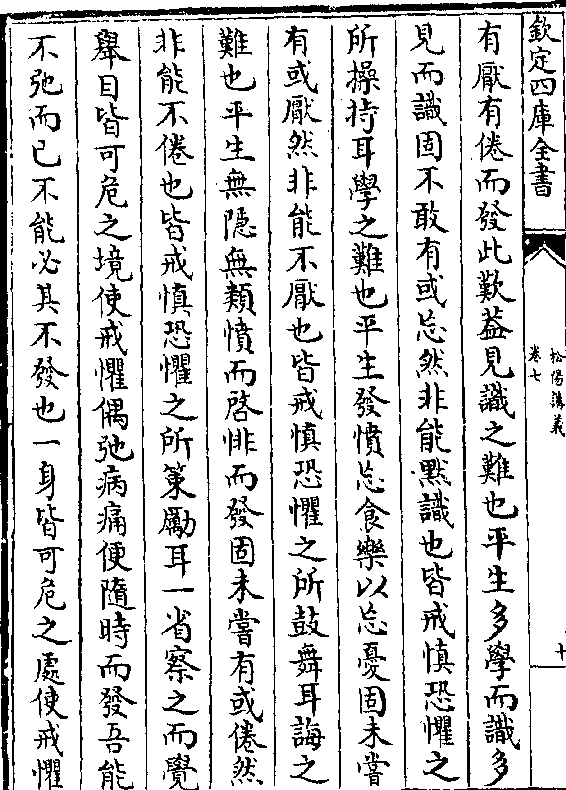 欽定四庫全書
松陽講義
卷七
十
有厭有倦而發此歎葢見識之難也平生多學而識多
見而識固不敢有或忘然非能黙識也皆戒慎恐懼之
所操持耳學之難也平生發憤忘食樂以忘憂固未嘗
有或厭然非能不厭也皆戒慎恐懼之所鼓舞耳誨之
難也平生無隱無類憤而啓悱而發固未嘗有或倦然
非能不倦也皆戒慎恐懼之所策勵耳一省察之而覺
舉目皆可危之境使戒懼偶弛病痛便隨時而發吾能
不弛而已不能必其不發也一身皆可危之處使戒懼